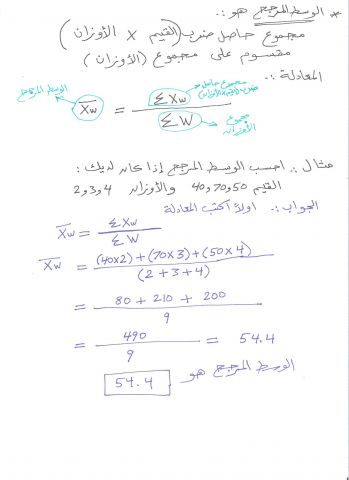 * الوسط المرجح هو :.
مجموع حاصل ضرب (القيم × الأوزان)
مقسوم على مجموع (الأوزان)
المعادلة :.
الوسط المرجح
X̄w = ΣXw / ΣW
مجموع حاصل ضرب (القيم × الأوزان)
مجموع الأوزان
مثال :. احسب الوسط المرجح إذا كان لديك :
القيم 50 و 70 و 40 والأوزان 4 و 3 و 2
الجواب :. أولاً أكتب المعادلة
X̄w = ΣXw / ΣW
X̄w = (40×2)+(70×3)+(50×4) / (2+3+4)
= 80 + 210 + 200 / 9
= 490 / 9 = 54.4
الوسط المرجح هو 54.4